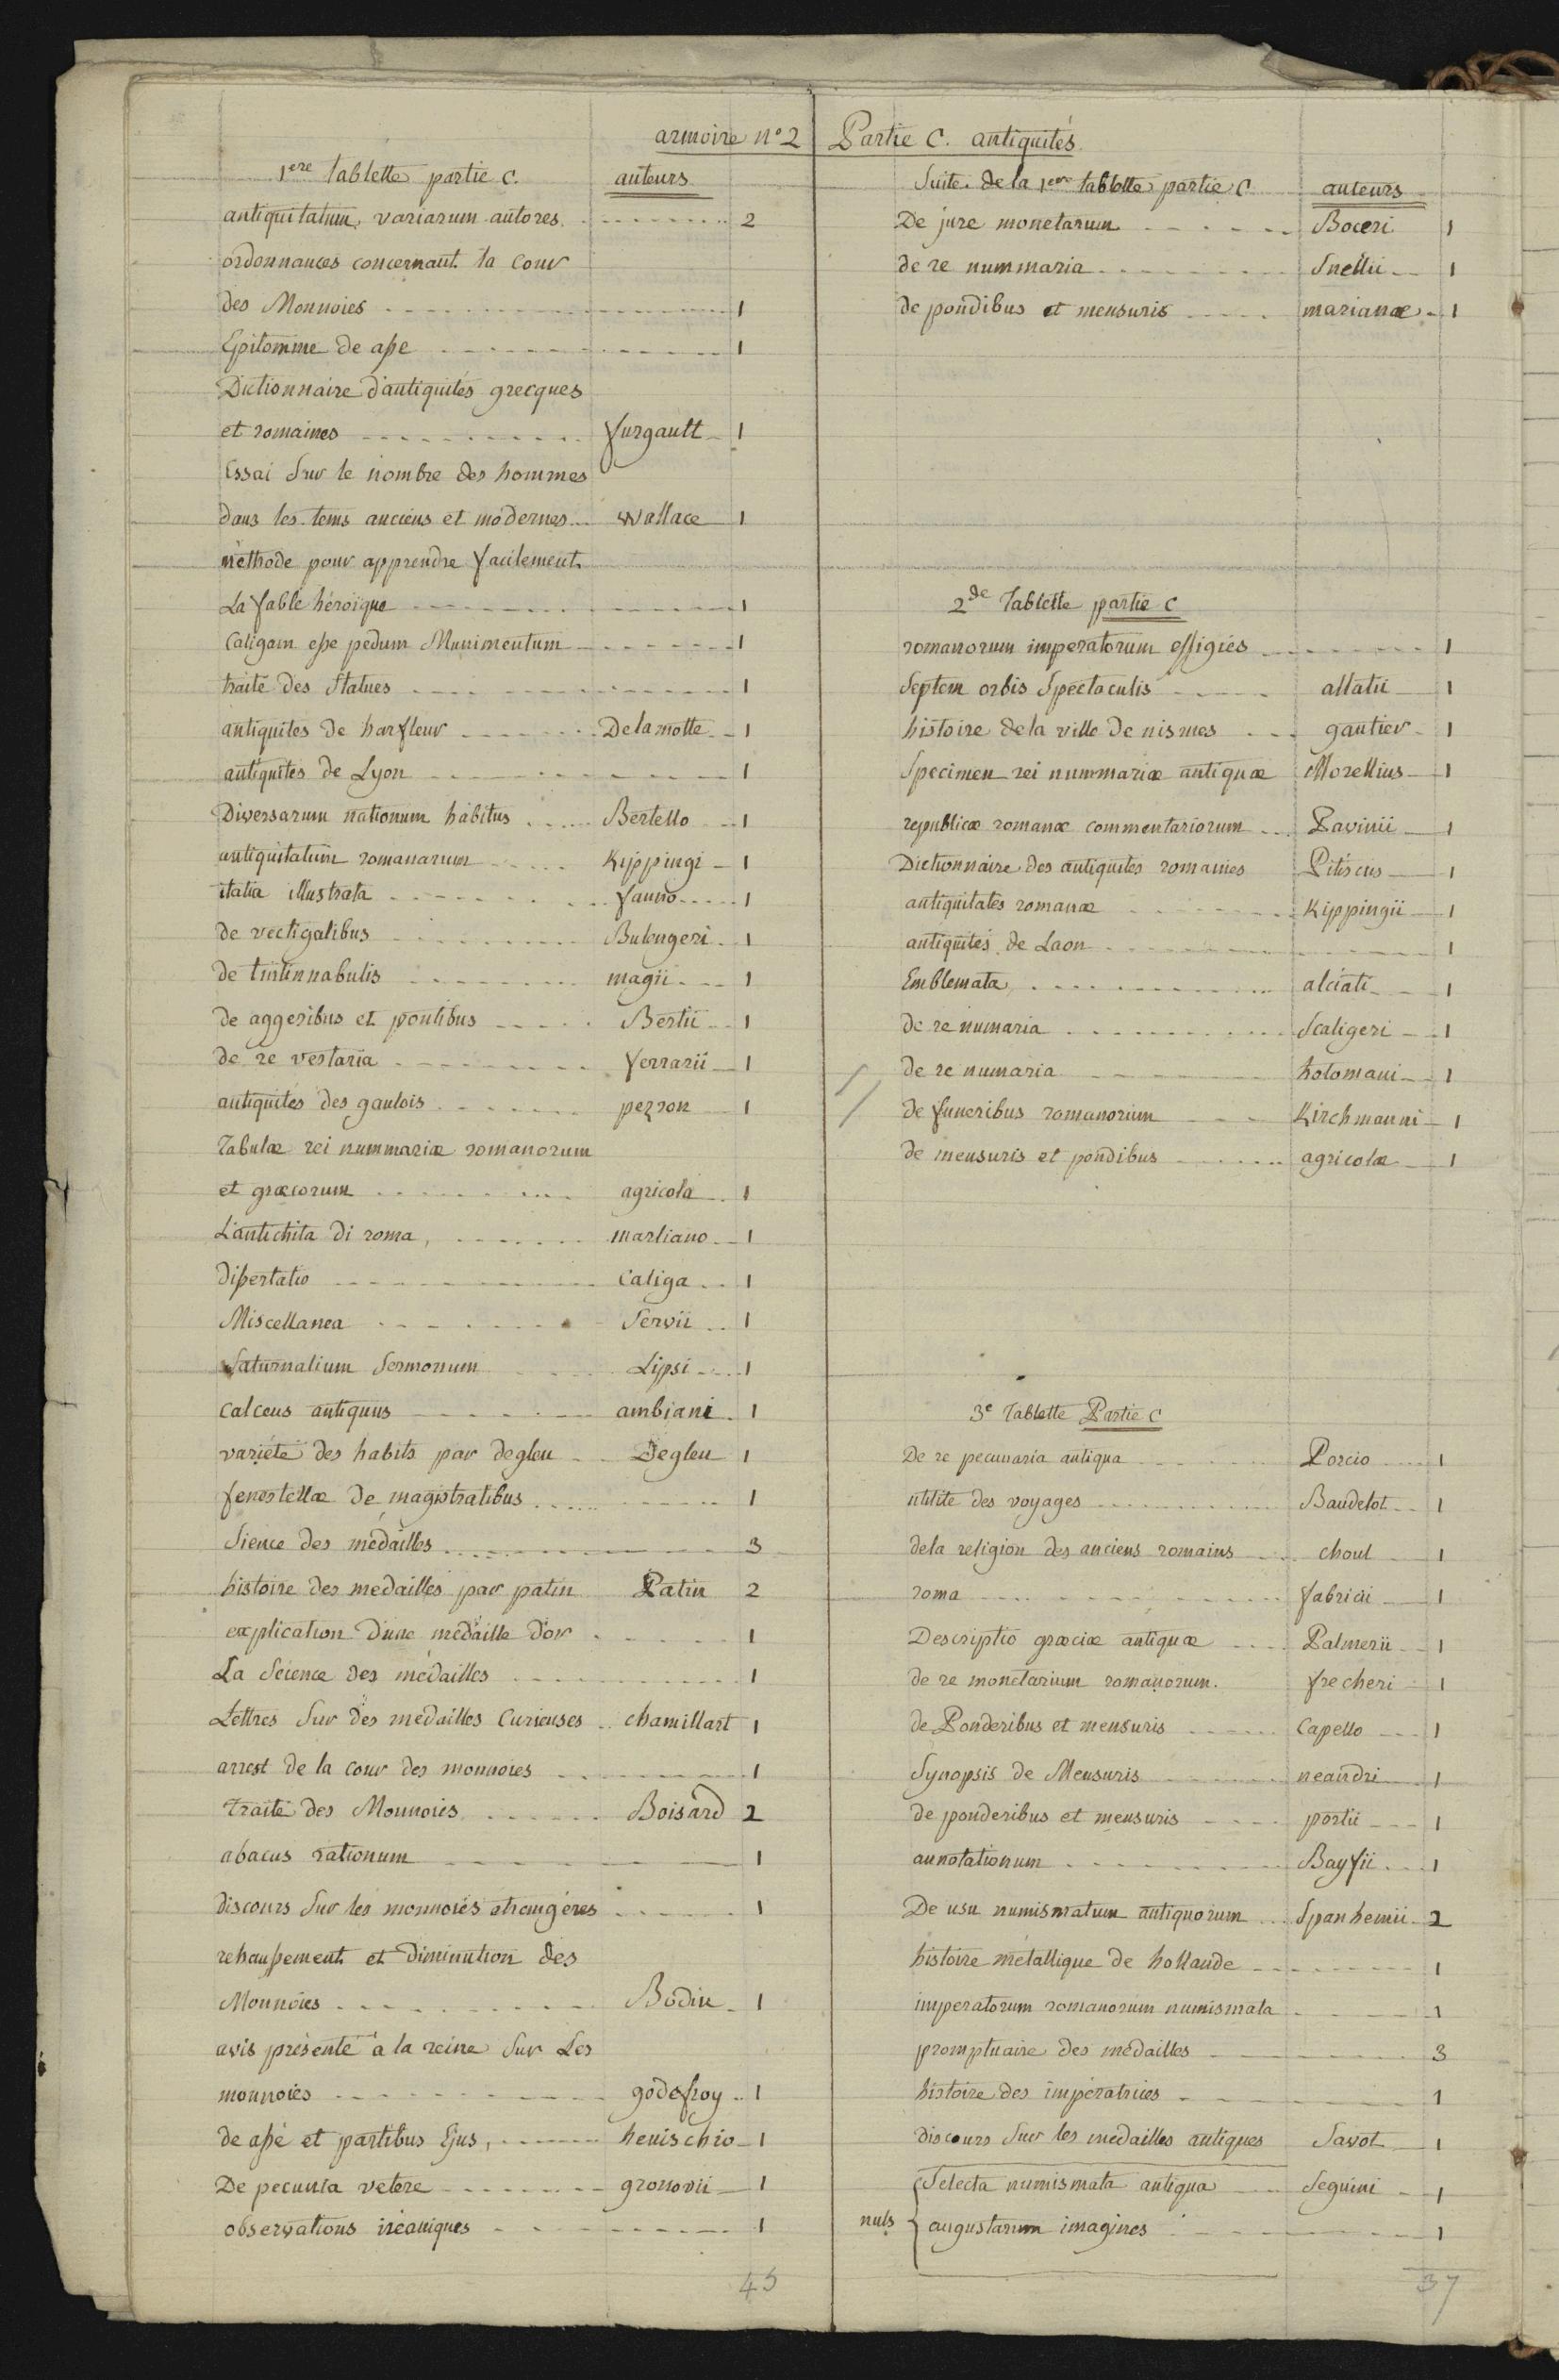 armoire n° 2 Partie C. antiquités.
1ere tablette partie C. auteurs
antiquitatum variarum autores. 2
ordonnances concernant la Cour
des Monnoies 1
Epitomme de asse 1
Dictionnaire d'antiquités grecques
et romaines furgault 1
Essai Sur le nombre des hommes
dans les tems anciens et modernes Wallace 1
méthode pour apprendre facilement
La fable héroïque 1
Caligam esse pedum Munimentum 1
traité des Statues 1
antiquites de harfleur De la motte 1
antiquites de Lyon 1
Diversarum nationum habitus Bertello 1
antiquitatum romanarum Kippingi 1
italia illustrata fauno 1
de vectigalibus Bulengeri 1
de tintinnabulis magii 1
de aggeribus et pontibus Bertii 1
de re vestaria ferrarii 1
antiquités des gaulois pezron 1
Tabulæ rei nummariæ romanorum
et græcorum agricola 1
L'antichita di roma, marliano 1
dissertatio Caliga 1
Miscellanea Servii 1
Saturnalium Sermonum Lipsi 1
Calceus antiquus ambiani 1
varieté des habits par deglen Deglen 1
fenestellæ de magistratibus 1
Sience des médailles 3
histoire des medailles par patin Patin 2
explication d'une médaille d'or 1
La Science des médailles 1
Lettres Sur des medailles Curieuses chamillart 1
arrest de la cour des monnoies 1
Traité des Monnoies Boisard 2
abacus rationum 1
discours Sur les monnoiés etrangéres 1
rehaussement et Diminution des
Monnoies Bodin 1
avis présenté a la reine Sur Les
monnoiés godefroy 1
de assé et partibus Ejus, henischio 1
De pecunia vetere gronovii 1
observations 1
45
Suite de la 1ere tablette partie C auteurs
De jure monetarum Boceri 1
de re nummaria Snellii 1
de pondibus et mensuris marianæ 1
2de Tablette partie C
romanorum imperatorum effigies 1
Septem orbis Spectaculis allatii 1
histoire de la ville de nismes gautier 1
Specimen rei nummariæ antiquæ Morellius 1
republicæ romanæ commentariorum Pavinii 1
Dictionnaire des antiquités romaines Pitiscus 1
antiquitates romanæ Kippingii 1
antiquités de Laon 1
Emblemata alciati 1
de re numaria Scaligeri 1
de re numaria hotomani 1
de funeribus romanorum Kirchmanni 1
de mensuris et pondibus agricolæ 1
3e Tablette Partie C
De re pecunaria antiqua Porcio 1
utilité des voyages Baudelot 1
de la religion des anciens romains choul 1
roma fabricii 1
Descriptio græciæ antiquæ Palmerii 1
de re monetarium romanorum. frecheri 1
de Ponderibus et mensuris Capello 1
Synopsis de Mensuris neandri 1
de ponderibus et mensuris portii 1
annotationum Bayfii 1
De usu numismatum antiquorum Spanhemii 2
histoire métallique de hollande 1
imperatorum romanorum numismata 1
promptuaire des médailles 3
histoire des impératrices 1
discours Sur les médailles antiques Savot 1
Selecta numismata antiqua Seguini 1
nuls augustarum imagines 1
37